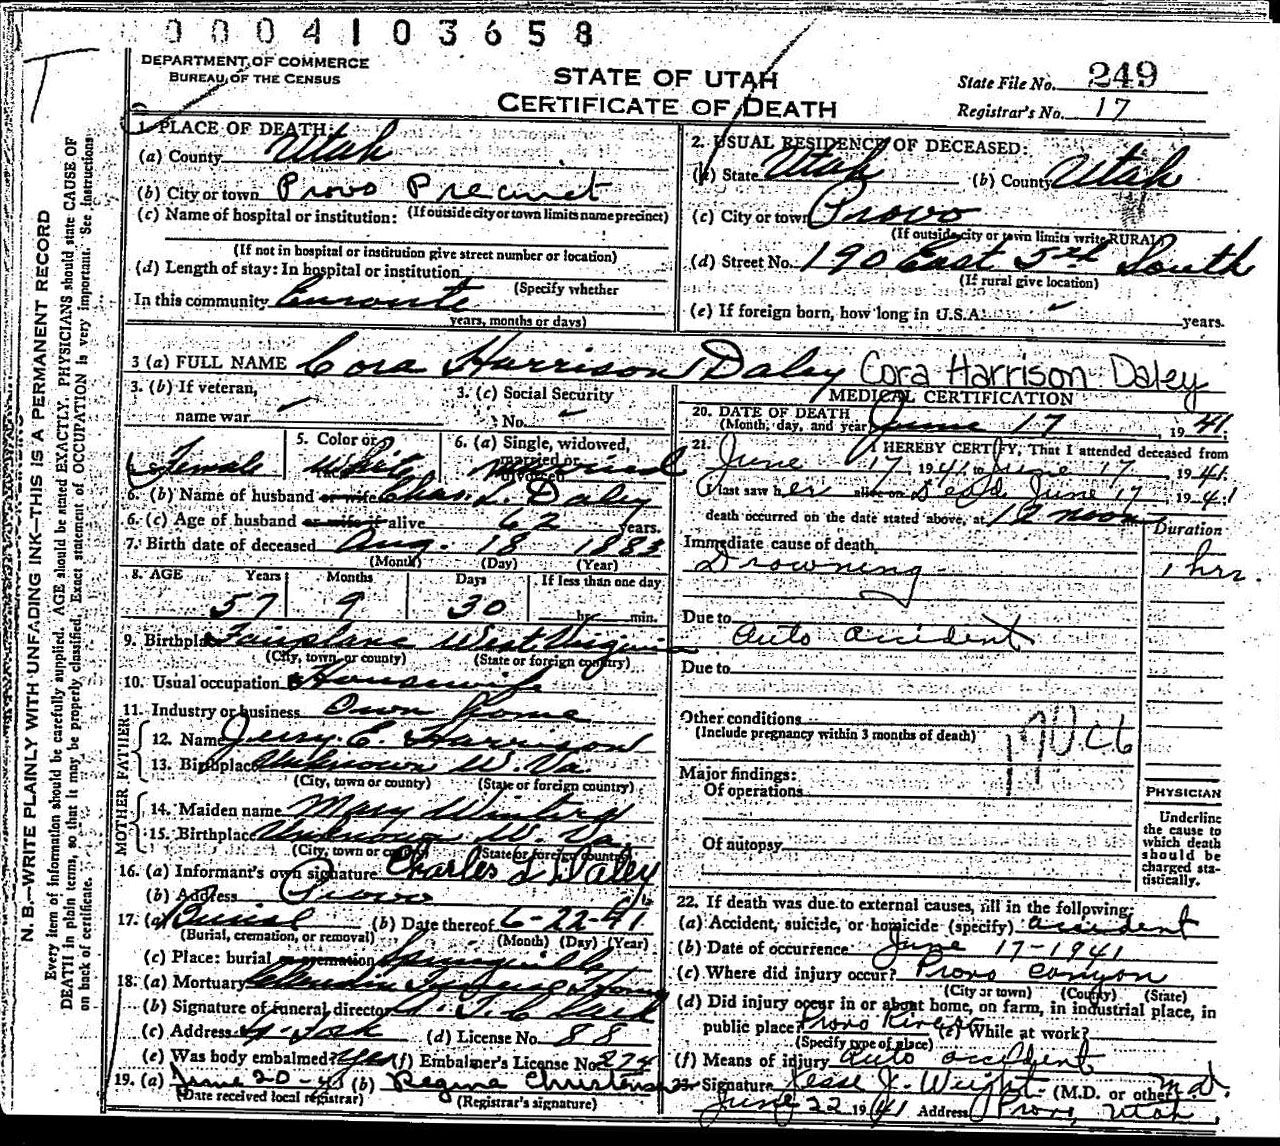 0004103658
DEPARTMENT OF COMMERCE
BUREAU OF THE CENSUS
STATE OF UTAH
CERTIFICATE OF DEATH
State File No. 249
Registrar's No. 17
N. B.—WRITE PLAINLY WITH UNFADING INK—THIS IS A PERMANENT RECORD
Every item of information should be carefully supplied. AGE should be stated EXACTLY. PHYSICIANS should state CAUSE OF
DEATH in plain terms, so that it may be properly classified. Exact statement of OCCUPATION is very important. See instructions
on back of certificate.
1. PLACE OF DEATH:
(a) County Utah
(b) City or town Provo Precinct
(c) Name of hospital or institution: (If outside city or town limits name precinct)
(If not in hospital or institution give street number or location)
(d) Length of stay: In hospital or institution
(Specify whether
In this community Enroute
years, months or days)
2. USUAL RESIDENCE OF DECEASED:
(a) State Utah (b) County Utah
(c) City or town Provo
(If outside city or town limits write RURAL)
(d) Street No. 190 East 5th South
(If rural give location)
(e) If foreign born, how long in U.S.A. years.
3 (a) FULL NAME Cora Harrison Daley Cora Harrison Daley
3. (b) If veteran,
name war
3. (c) Social Security
No.
Female
5. Color or
White
6. (a) Single, widowed,
married or
divorced
Married
6. (b) Name of husband or wife Chas. L. Daley
6. (c) Age of husband or wife if alive 62 years.
7. Birth date of deceased Aug. 18 1883
(Month) (Day) (Year)
8. AGE Years Months Days If less than one day
57 9 30 hr. min.
9. Birthplace West Virginia
(City, town or county) (State or foreign country)
10. Usual occupation Housewife
11. Industry or business Own Home
FATHER
12. Name Jerry E. Harrison
13. Birthplace Unknown W. Va.
(City, town or county) (State or foreign country)
MOTHER
14. Maiden name Mary
15. Birthplace Unknown W. Va.
(City, town or county) (State or foreign country)
16. (a) Informant's own signature Charles L Daley
(b) Address Provo
17. (a) Burial (b) Date thereof 6-22-41
(Burial, cremation, or removal) (Month) (Day) (Year)
(c) Place: burial or cremation Springville
18. (a) Mortuary
(b) Signature of funeral director
(c) Address (d) License No. 88
(e) Was body embalmed? Yes (f) Embalmer's License No. 274
19. (a) June 20-41 (b) Regina Christensen
(Date received local registrar) (Registrar's signature)
MEDICAL CERTIFICATION
20. DATE OF DEATH
(Month, day, and year) June 17, 1941.
21. I HEREBY CERTIFY, That I attended deceased from
June 17, 1941 to June 17, 1941.
I last saw her alive on Dead June 17, 1941
death occurred on the date stated above, at 12 noon
Duration
Immediate cause of death
Drowning 1 hrs.
Due to Auto accident
Due to
Other conditions
(Include pregnancy within 3 months of death)
Major findings:
Of operations
Of autopsy
PHYSICIAN
Underline
the cause to
which death
should be
charged sta-
tistically.
22. If death was due to external causes, fill in the following:
(a) Accident, suicide, or homicide (specify) accident
(b) Date of occurrence June 17-1941
(c) Where did injury occur? Provo Canyon
(City or town) (County) (State)
(d) Did injury occur in or about home, on farm, in industrial place, in
public place? Provo River (e) While at work?
(Specify type of place)
(f) Means of injury auto accident
23. Signature Jesse J. Weight (M.D. or other) m.d.
June 22 1941 Address Provo, Utah